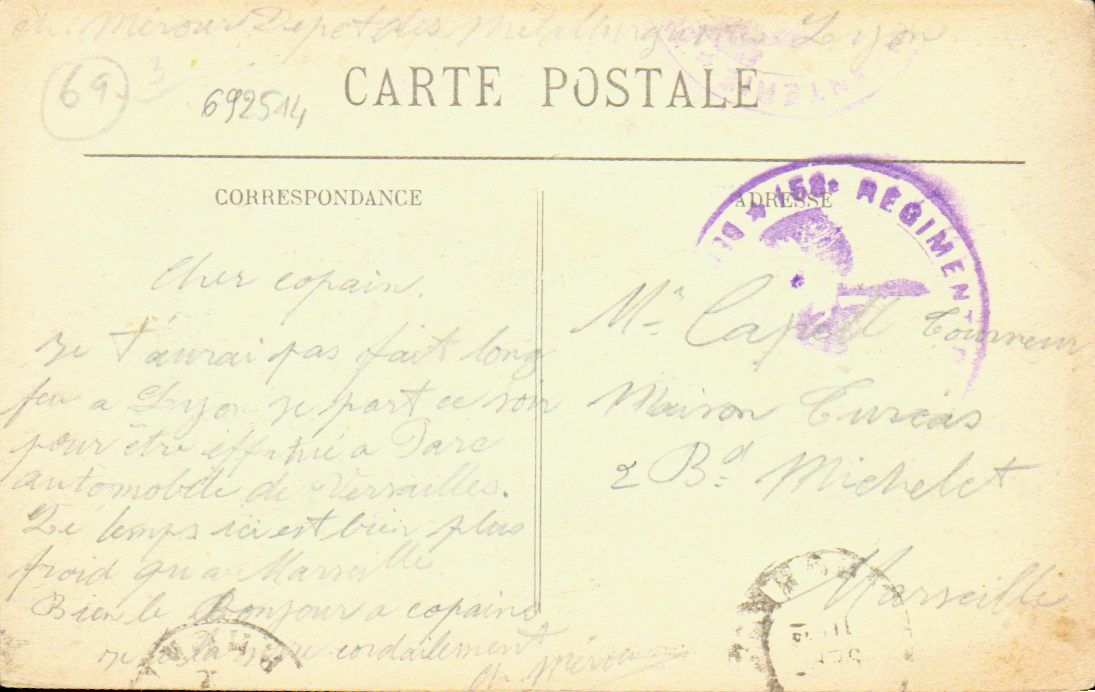 Ch. Mérour Depot des Metallurgistes Lyon
69 3
692514
CARTE POSTALE
CORRESPONDANCE
ADRESSE
158e RÉGIMENT
Cher copain.
je t'aurai pas fait long
feu a Lyon je part ce soir
pour être affatué a Parc
automobile de Versailles.
Le temps ici est bien plus
froid qu'a Marseille
Bien le Bonjour a copains
je la serre cordailement
Ch. Mérour
Mr Capell Tourneur
Maison Turcas
2 Bd Michelet
Marseille